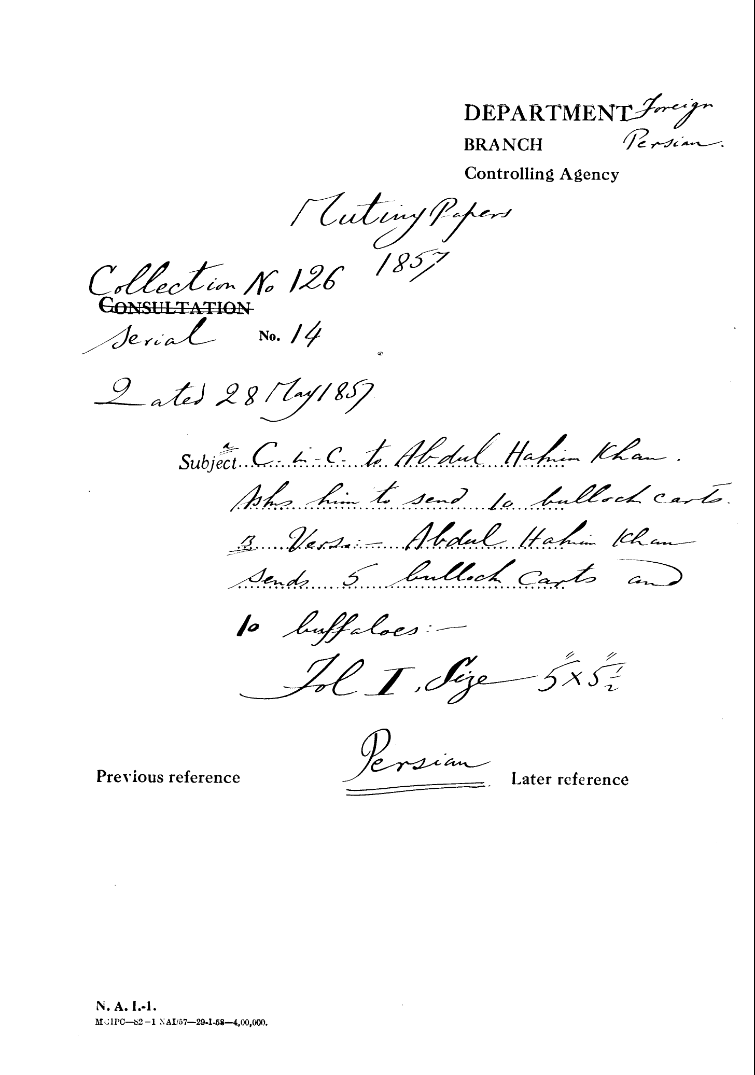 DEPARTMENT Foreign
BRANCH Persian.
Controlling Agency
Mutiny Papers
1857
Collection No 126
CONSULTATION
Serial No. 14
Dated 28 May 1857
Subject a C. in. C. to Abdul Hakim Khan.
Asks him to send 10 bullock carts.
B Verso:— Abdul Hakim Khan
sends 5 bullock carts and
10 buffaloes:—
Fol I, Size 5" x 5 1/2"
Persian
Previous reference
Later reference
N. A. I.-1.
NAI/57—29-1-58—4,00,000.